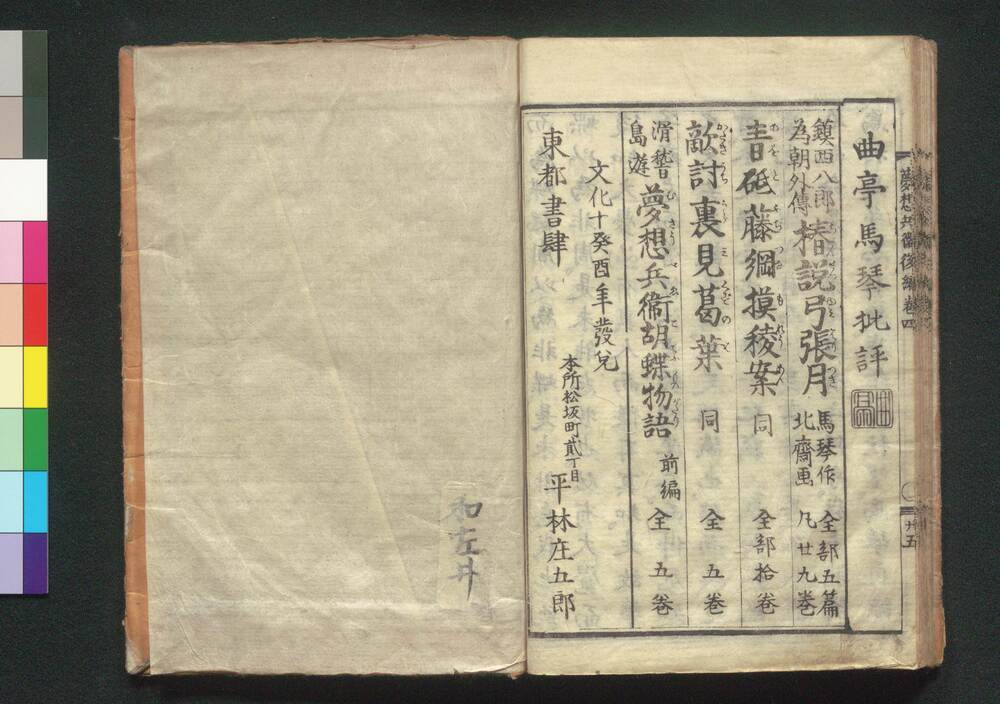 夢想兵衛後編巻四
廿五
曲亭馬琴批評
鎮西八郎
為朝外傳
椿説弓張月
馬琴作
北齋画
全部五篇
凡廿九巻
青砥藤綱摸稜案 同 全部拾巻
敵討裏見葛葉 同 全五巻
滑稽
島遊
夢想兵衛胡蝶物語 前編 全五巻
文化十癸酉年發兌
東都書肆
本所松坂町貳丁目
平林庄五郎
和左井